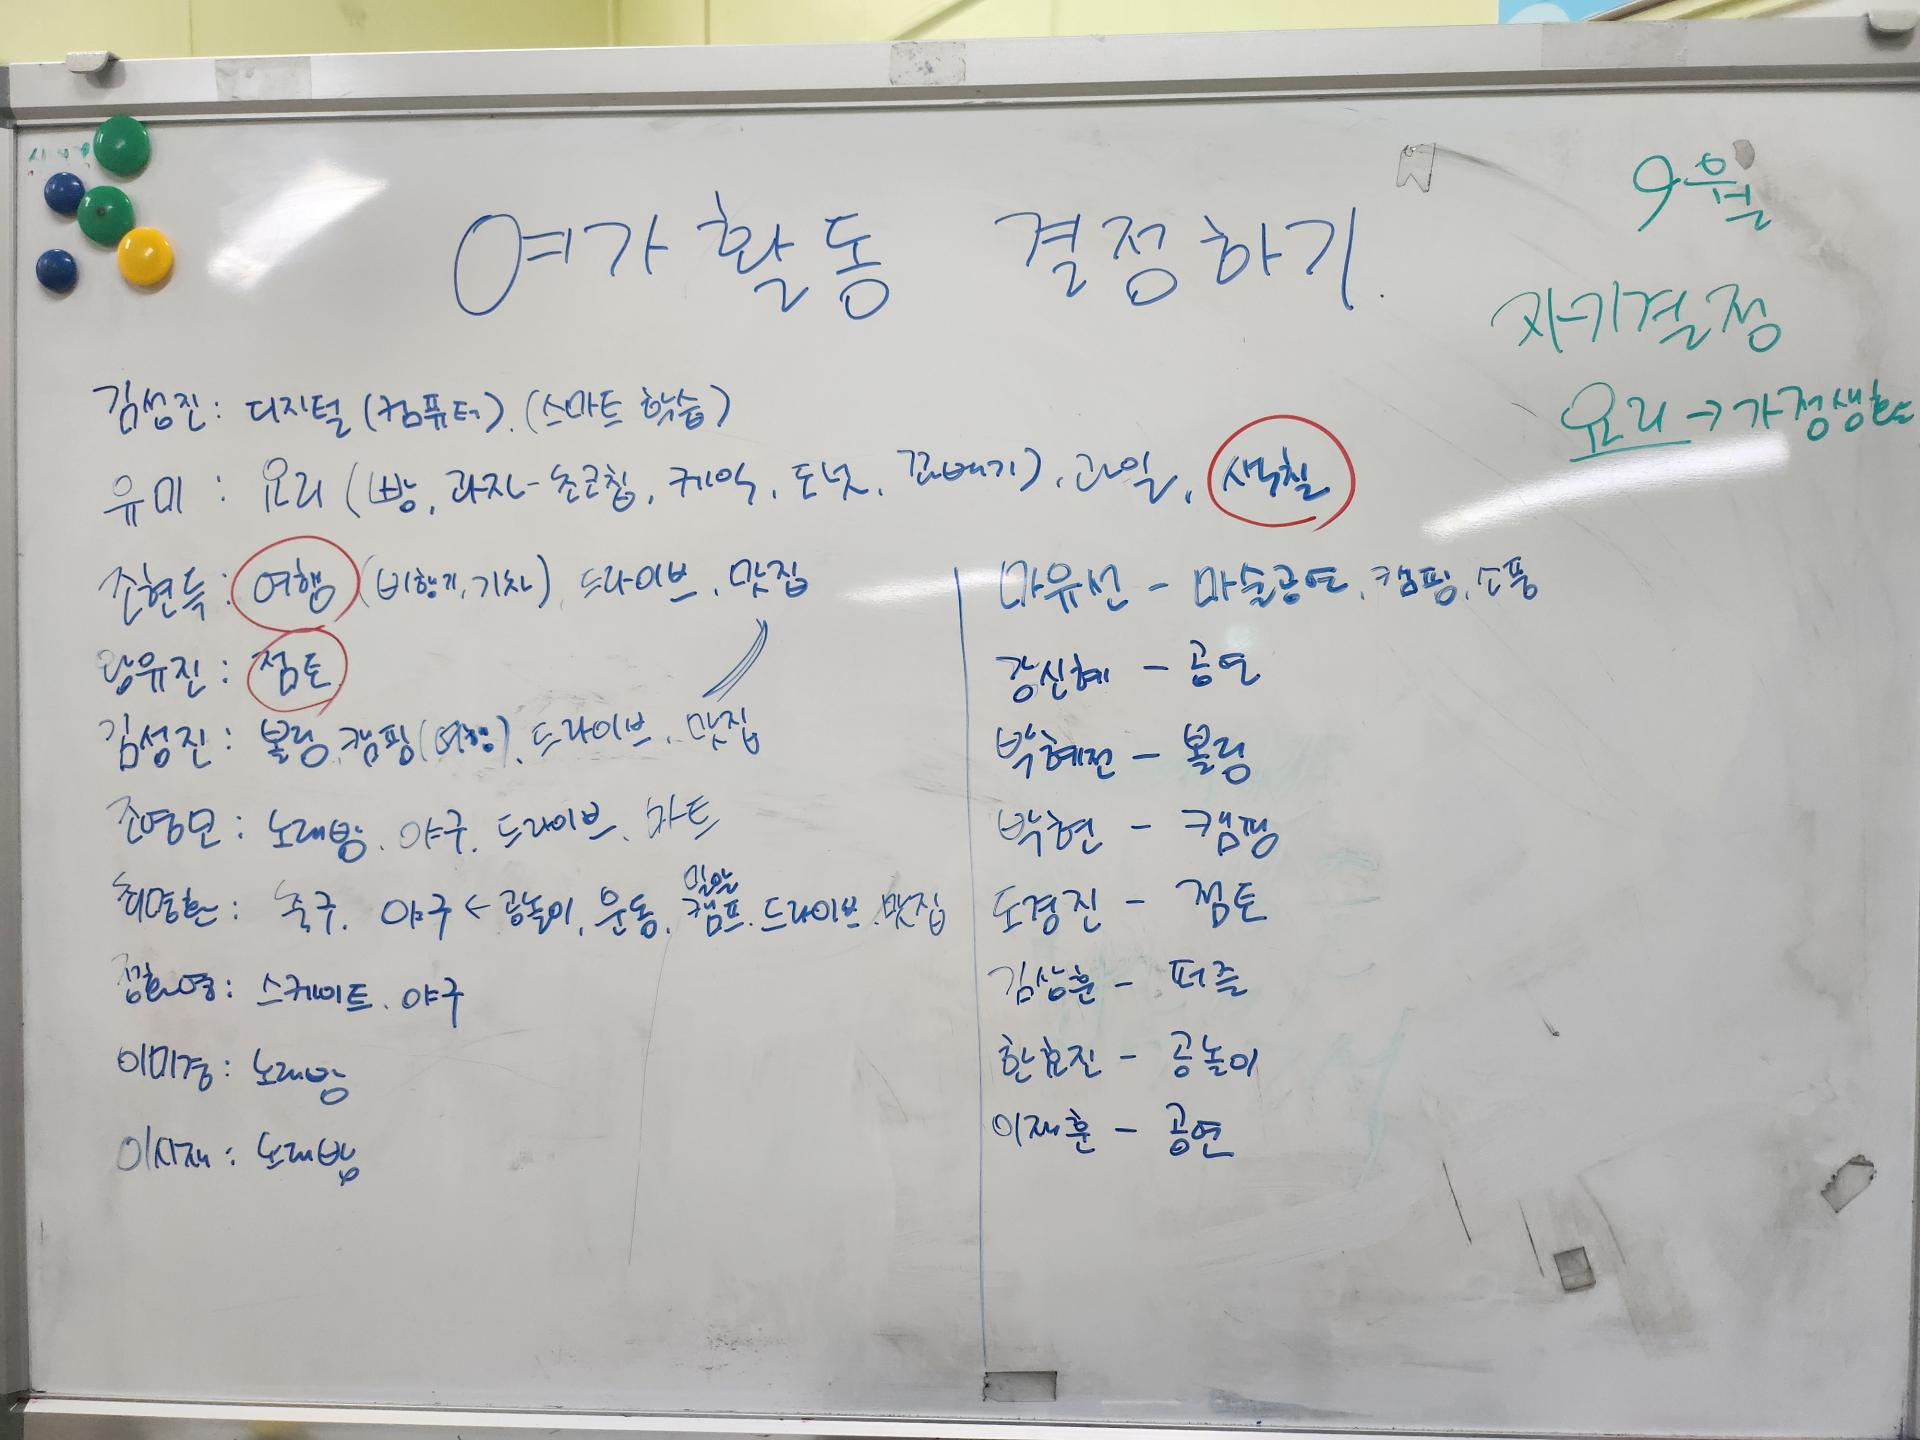 여가활동 결정하기
9월
자기결정
요리 → 가정생활
김성진 : 디지털 (컴퓨터), (스마트 학습)
유미 : 요리 (빵, 과자-초코칩, 케익, 도넛, 꽈배기), 과일, 색칠
조현득 : 여행 (비행기, 기차), 드라이브, 맛집
왕유진 : 점토
김성진 : 볼링, 캠핑(여행), 드라이브, 맛집
조영모 : 노래방, 야구, 드라이브, 마트
최명환 : 축구, 야구 ← 공놀이, 운동, 밀알 캠프, 드라이브, 맛집
스케이트, 야구
이미경 : 노래방
이시재 : 노래방
마유선 - 마술공연, 캠핑, 소풍
강신혜 - 공연
박혜전 - 볼링
박현 - 캠핑
도경진 - 점토
김상훈 - 퍼즐
한효진 - 공놀이
이재훈 - 공연